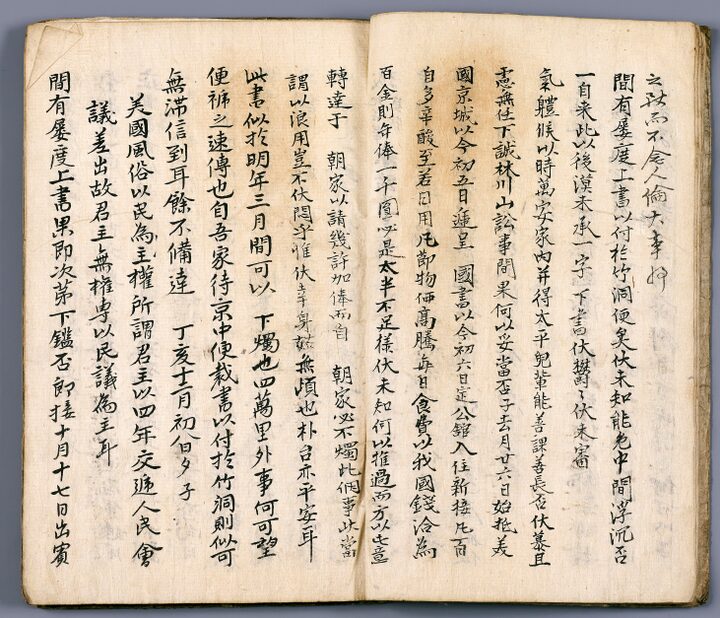 之歎而不念人倫大事好
間有屡度上書以付於竹洞便矣伏未知能免中間浮沉否
一自来此以後漠未承一字 下書伏欝〻伏未審
氣軆候以時萬安家内并得太平兒輩能善課善長否伏慕且
慮無任下誠林川山訟事間果何以妥當否子去月廿六日始抵美
國京城以今初五日逓呈 國書以今初六日定公舘入住新接凡百
自多辛酸至若日用凡節物価高騰每日食費以我國錢洽為
百金則年俸一千圓必是太半不足樣伏未知何以推過而方以此意
轉達于 朝家以請幾許加俸而自 朝家必不燭此個事此當
謂以浪用豈不伏悶乎惟伏幸身姑無頉也朴台亦平安耳
此書似於明年三月間可以 下燭也四萬里外事何可望
便褫之速傳也自吾家待京中便裁書以付於竹洞則似可
無滞信到耳餘不備達 丁亥十二月初八日夕子
美國風俗以民為主權所謂君主以四年交遞人民會
議差出故君主無權専以民議為主耳
間有屡度上書果即次第下鑑否即接十月十七日出賓